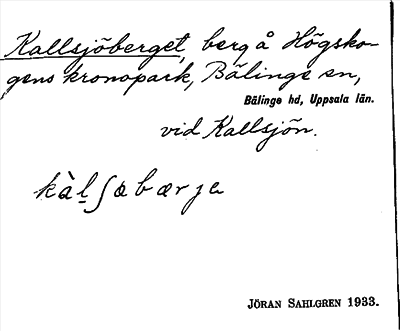 Kallsjöberget, berg å Högsko-
gens kronopark, Bälinge sn,
Bälinge hd, Uppsala län.
vid Kallsjön.
kàl̠ʃəbærjə
JÖRAN SAHLGREN 1933.